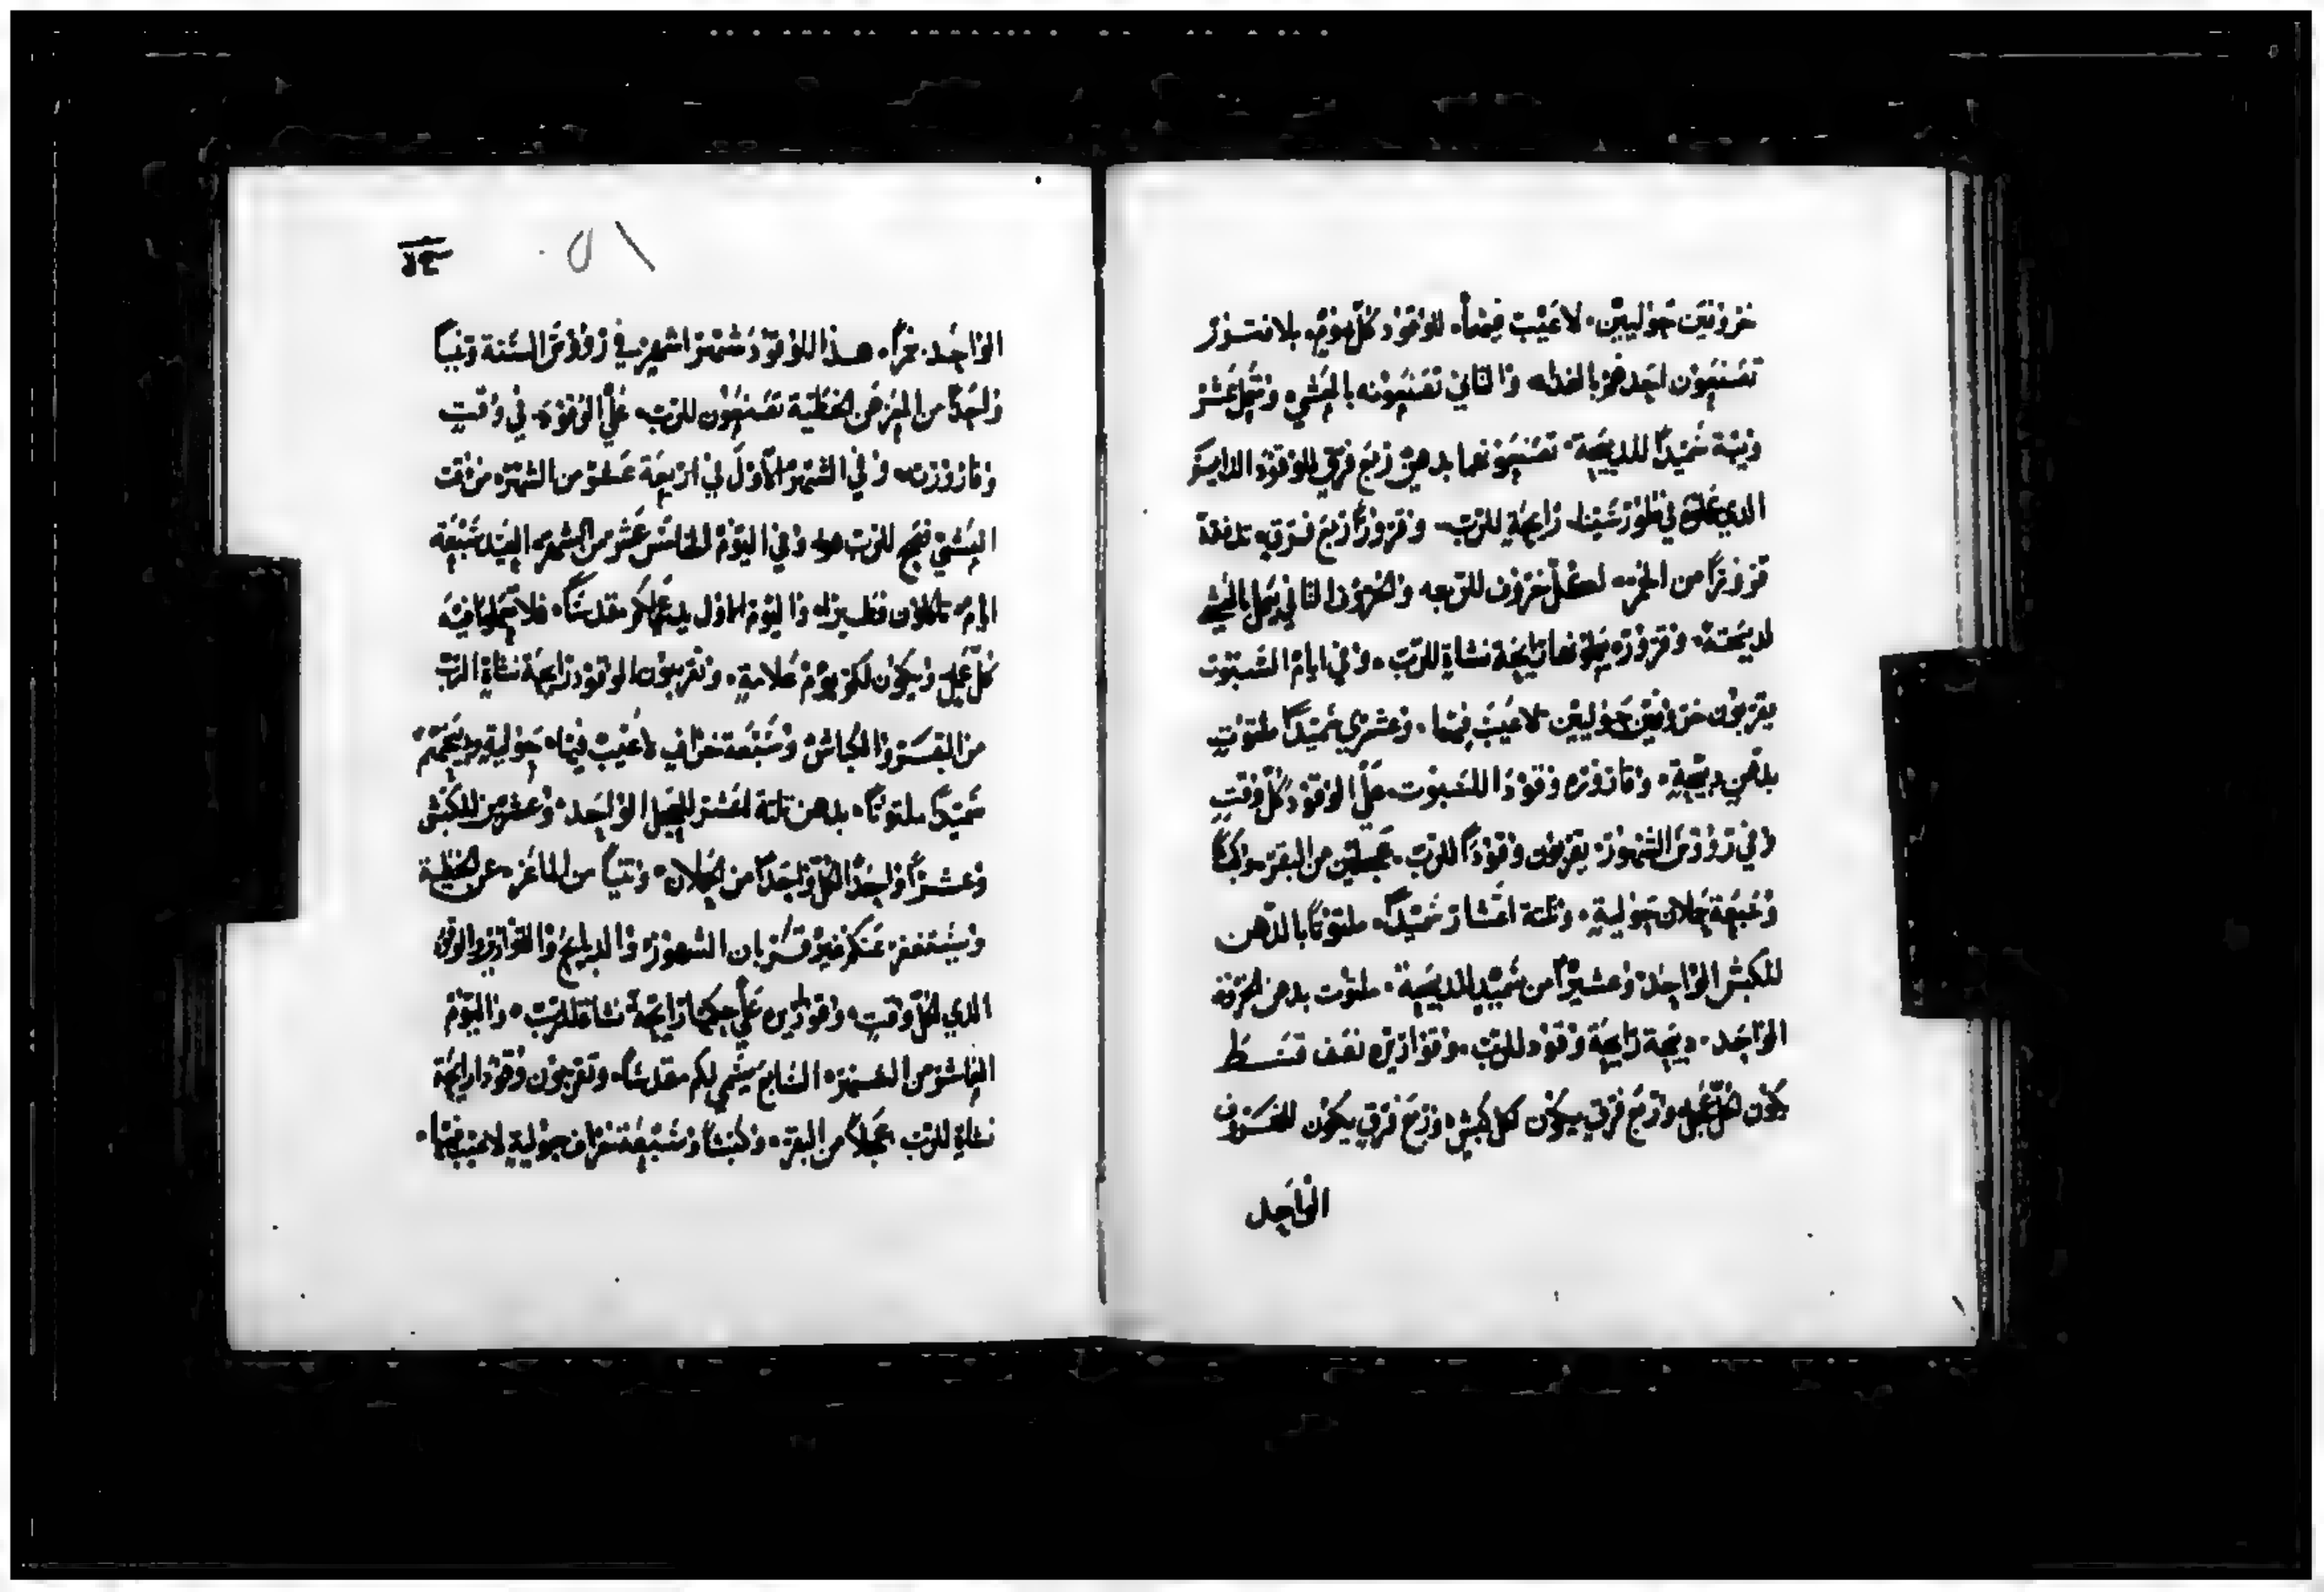 خروفين حوليين. لا عيب فيهما. للوقود كل يوم. بلا فتور
تصنعون احدهم بالغداه والثاني تصنعونه بالعشي وتجعل عشر
ويبة سميدا للدبيحة. تصنعونها بدهن ربع فرق للوقود الدايم
الدي في طور سينا. رايحة للرب. وقرورا ربع فرق. تدفقه
قرورا من الخمر. خروف للرب والخروف الثاني يعمل بالعشي
لدبيحته. وقروره رايحة نشاة للرب. وفي ايام السبوت
يقربون خروفين حوليين لا عيب فيهما. وعشري سميدا ملتوت
بدهن دبيحة. وقاروره وقودا للسبوت. على الوقود كل وقت
وفي رووس الشهور. يقربون وقودا للرب. عجلين من البقر وكبشا
وسبعة حملان حولية. وثلثة اعشار سميدا. ملتوتا بالدهن
للكبش الواحد. وعشيرا من سميد الدبيحة. ملتوت بدهن الخروف
الواحد. دبيحة رايحة وقود للرب. وقواريره نصف قسط
يكون كل عجل وربع فرق يكون لكل كبش. وربع فرق يكون للخروف
الواحد
١٥
الواحد. خمرا. هذا الوقود شهر اشهر في رووس السنة وتيسا
واحدا من المعز عن الخطية تصنعون للرب. على الوقود. في وقت
وقارورته وفي الشهر الاول في اربعة عشر من الشهر. من وقت
العشي فصح للرب هو. وفي اليوم الخامس عشر من الشهر. العيد سبعة
ايام تاكلون فطيرا. واليوم الاول يدعى لكم مقدسا. فلا تعملوا فيه
كل عمل ويكون لكم يوم علامة. وتقربون الوقود رايحة نشاة الرب
من البقر والكباش وسبعة خراف لا عيب فيها. حولية ودبيحتهم
سميدا ملتوتا. بدهن ثلثة اعشر للعجل الواحد. وعشرين للكبش
وعشرا واحدا لكل واحدا من الحملان. وتيسا من الماعز. عن الخطية
ويستغفر عنكم غير قربان الشهور. والدبايح والقوارير والوقود
الدي لكل وقت. وقواريره على حكمها رايحة نشاة للرب. واليوم
العاشر من الشهر. السابع يسمى لكم مقدسا. وتقربون وقودا رايحة
نشاة للرب. عجلا من البقر. وكبشا وسبعة خراف حولية لا عيب فيها.